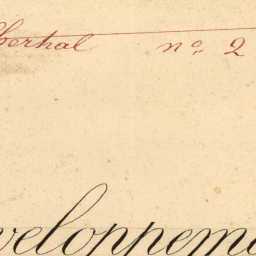 verbal nº 2
veloppeme